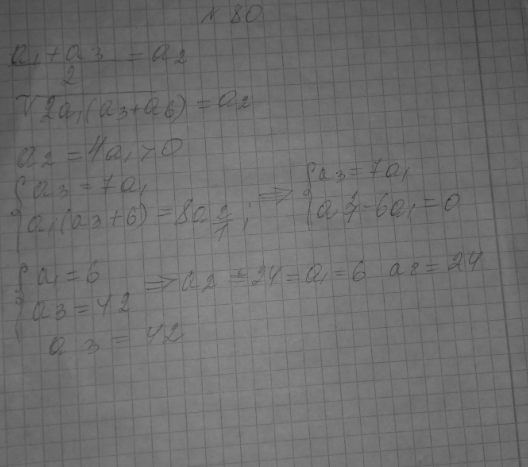 № 80
(a₁ + a₃)/2 = a₂
√2a₁(a₃+a₆) = a₂
a₂ = 4a₁ > 0
{ a₃ = 7a₁
a₁(a₃+6) = 8a₁²; ⇒ { a₃ = 7a₁
a₁² - 6a₁ = 0
{ a₁ = 6
a₃ = 42 ⇒ a₂ = 24 = a₁ = 6 a₂ = 24
a₃ = 42